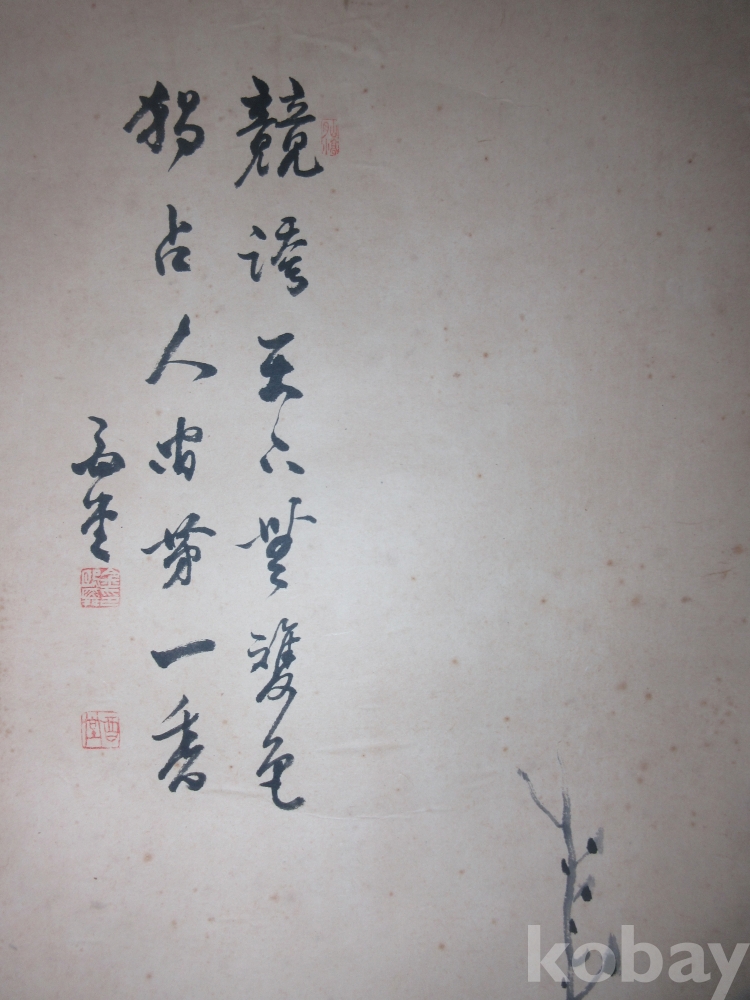 競誇天下無雙色
獨占人間第一香
酉堂
酉堂
kobay